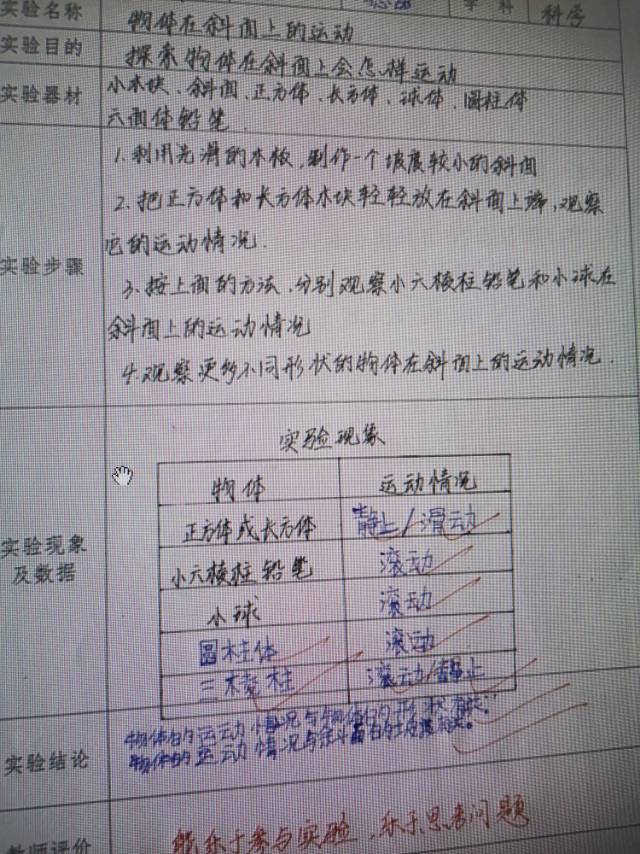 实验名称 物体在斜面上的运动 学 科 科学
实验目的 探索物体在斜面上会怎样运动
实验器材 小木块、斜面、正方体、长方体、球体、圆柱体
六面体铅笔
实验步骤
1.利用光滑的木板,制作一个坡度较小的斜面
2.把正方体和长方体木块轻轻放在斜面上端,观察
它的运动情况.
3.按上面的方法,分别观察小六棱柱铅笔和小球在
斜面上的运动情况
4.观察更多不同形状的物体在斜面上的运动情况.
实验现象
及数据
实验现象
物体 运动情况
正方体或长方体 静止/滑动
小六棱柱铅笔 滚动
小球 滚动
圆柱体 滚动
三棱柱 滚动/静止
实验结论
物体的运动情况与物体的形状有关.
物体的运动情况与斜面的坡度有关.
教师评价 能乐于参与实验,乐于思考问题